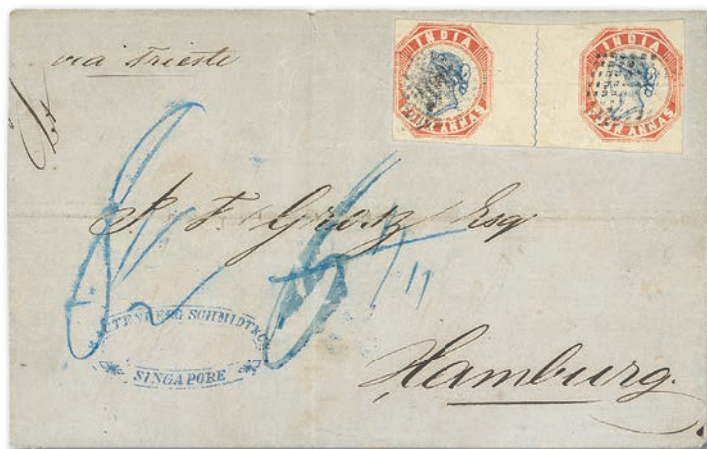 via Trieste
INDIA
FOUR ANNAS
INDIA
FOUR ANNAS
P. F. Grotz Esq
SCHMIDT & Co
SINGAPORE
Hamburg.